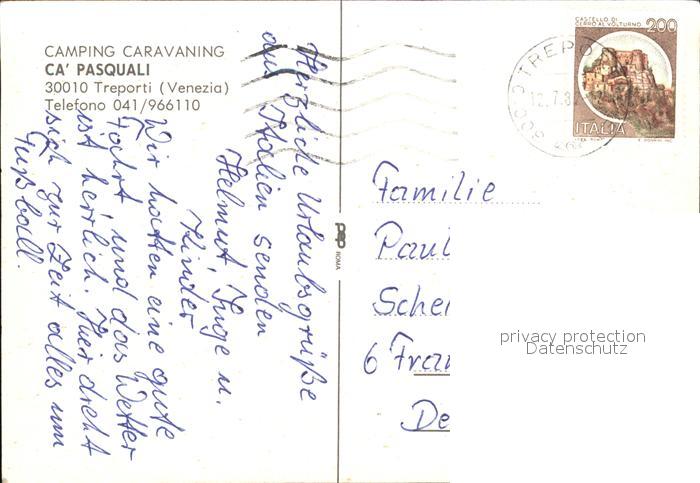 CAMPING CARAVANING
CA' PASQUALI
30010 Treporti (Venezia)
Telefono 041/966110
Herzliche Urlaubsgrüße
aus Italien senden
Helmut, Inge u.
Kinder
Wir hatten eine gute
Fahrt und das Wetter
ist herrlich. Hier dreht
sich zur Zeit alles um
Fußball.
pep
ROMA
CASTELLO DI
CERRO AL VOLTURNO
200
ITALIA
TREPO
12.7.8
Familie
Paul
Schei
6 Fran
De
privacy protection
Datenschutz